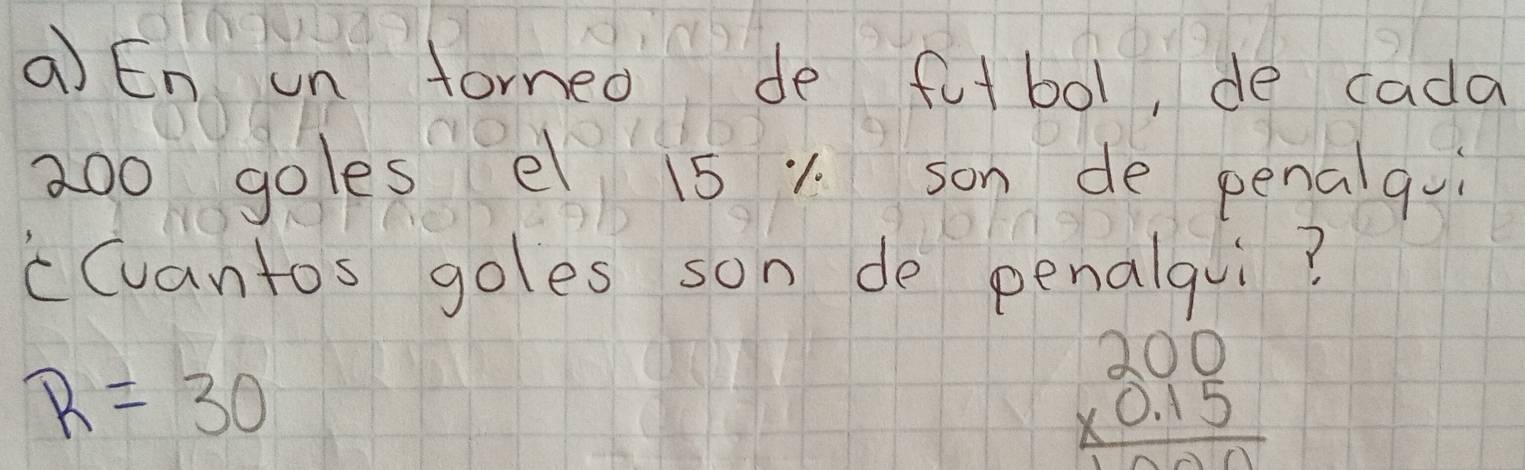 a) En un torneo de futbol, de cada
200 goles el 15 % son de penalqui
¿Cuantos goles son de penalqui?
200
R = 30
x 0.15
1000